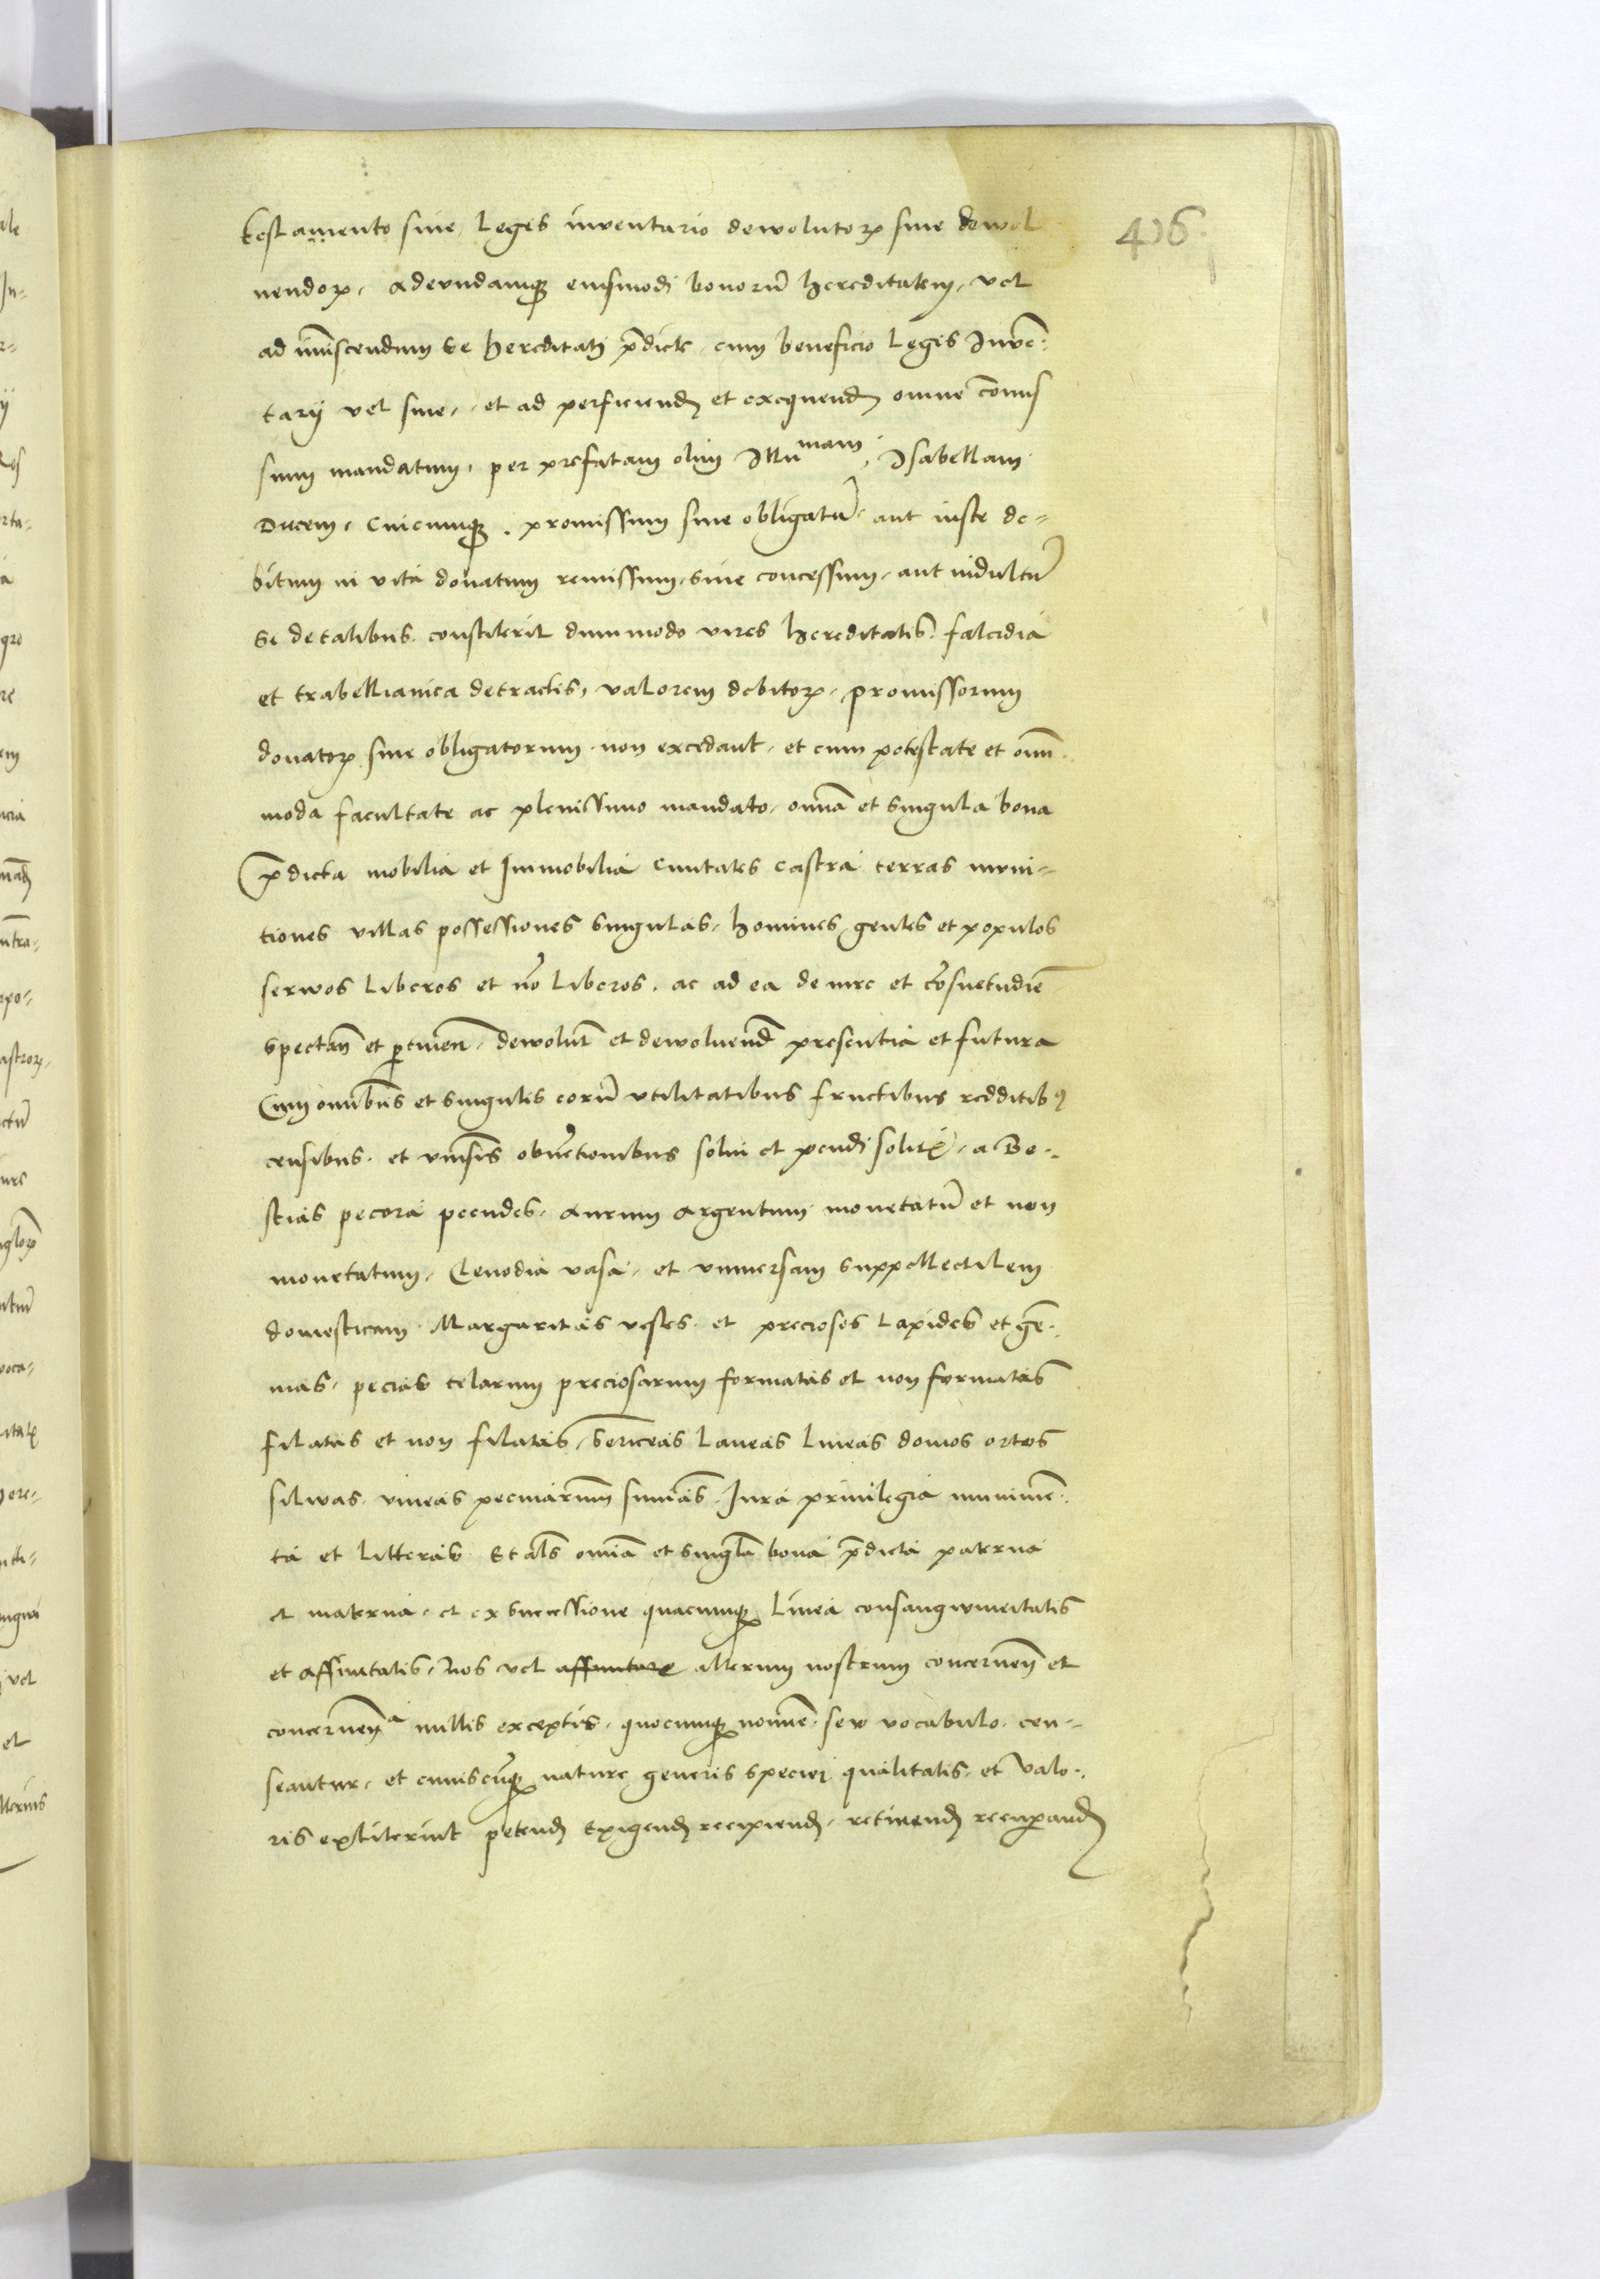 416.
testamento siue Legis inventario dewolutoꝝ siue dewol
uendoꝝ, Adeundamqꝫ eiusmodi bonorū hereditatem, vel
ad im̄iscendum se hereditati p̄dicte, cum beneficio Legis Inve͞:
tarÿ vel sine, et ad perficiend et exequend omne com̄is
sum mandatum, per prefatam olim Illumam, Isabellam
Ducem, Cuicumqꝫ. promissum siue obligatū, aut iuste de=
bitum in vita donatum remissum, siue concessum, aut indultū
Se detalibus. constiterit dummodo vires hereditatis. falcidia
et trabellianica detractis, valorem debitoꝝ, promissorum
donatoꝝ siue obligatorum. non excedant, et cum potestate et omi͞.
moda facultate ac plenissimo mandato, omīa et singula bona
p̄dicta mobilia et Immobilia Ciuitates castra terras muni=
tiones villas possessiones singulas, homines, gentes et populos
serwos Liberos et nō Liberos. ac ad ea de iure et cōsuetudīe
spectan̄ et ꝑtinen̄. dewolut̄ et dewoluend̄ presentia et futura
Cum omībus et singulis eorū vtilitatibus fructibus redditibꝰ
censibus. et vniūsis obuētionibus solui et pendi solitis, a Be:
stias pecora pecudes, Aurum Argentum monetatū et non
monetatum, Clenodia vasa, et vniuersam suppellectilem
domesticam Margaritas vestes. et preciosos Lapides et ge͞.
mas, pecias telarum preciosarum formatas et non formatas
filatas et non filatas, Sericeas Laneas Lineas domos ortos
silwas. vineas pecuniarum sum̄as. Iura priuilegia munime͞.
ta et Litteras Et al̄s omīa et singl̄a bona p̄dicta paterna
et materna, et ex successione quacumqꝫ Linea consanguineitatis
et Affinitatis, nos vel affinitate alterum nostrum concernen̄ et
concernen̄a nullis exceptis, quocumqꝫ nomīe. sew vocabulo. cen=
seantur, et cuiuscūqꝫ nature generis speciei qualitatis. et valo:
ris extiterint petend Exigend recipiend, retinend recuꝑand